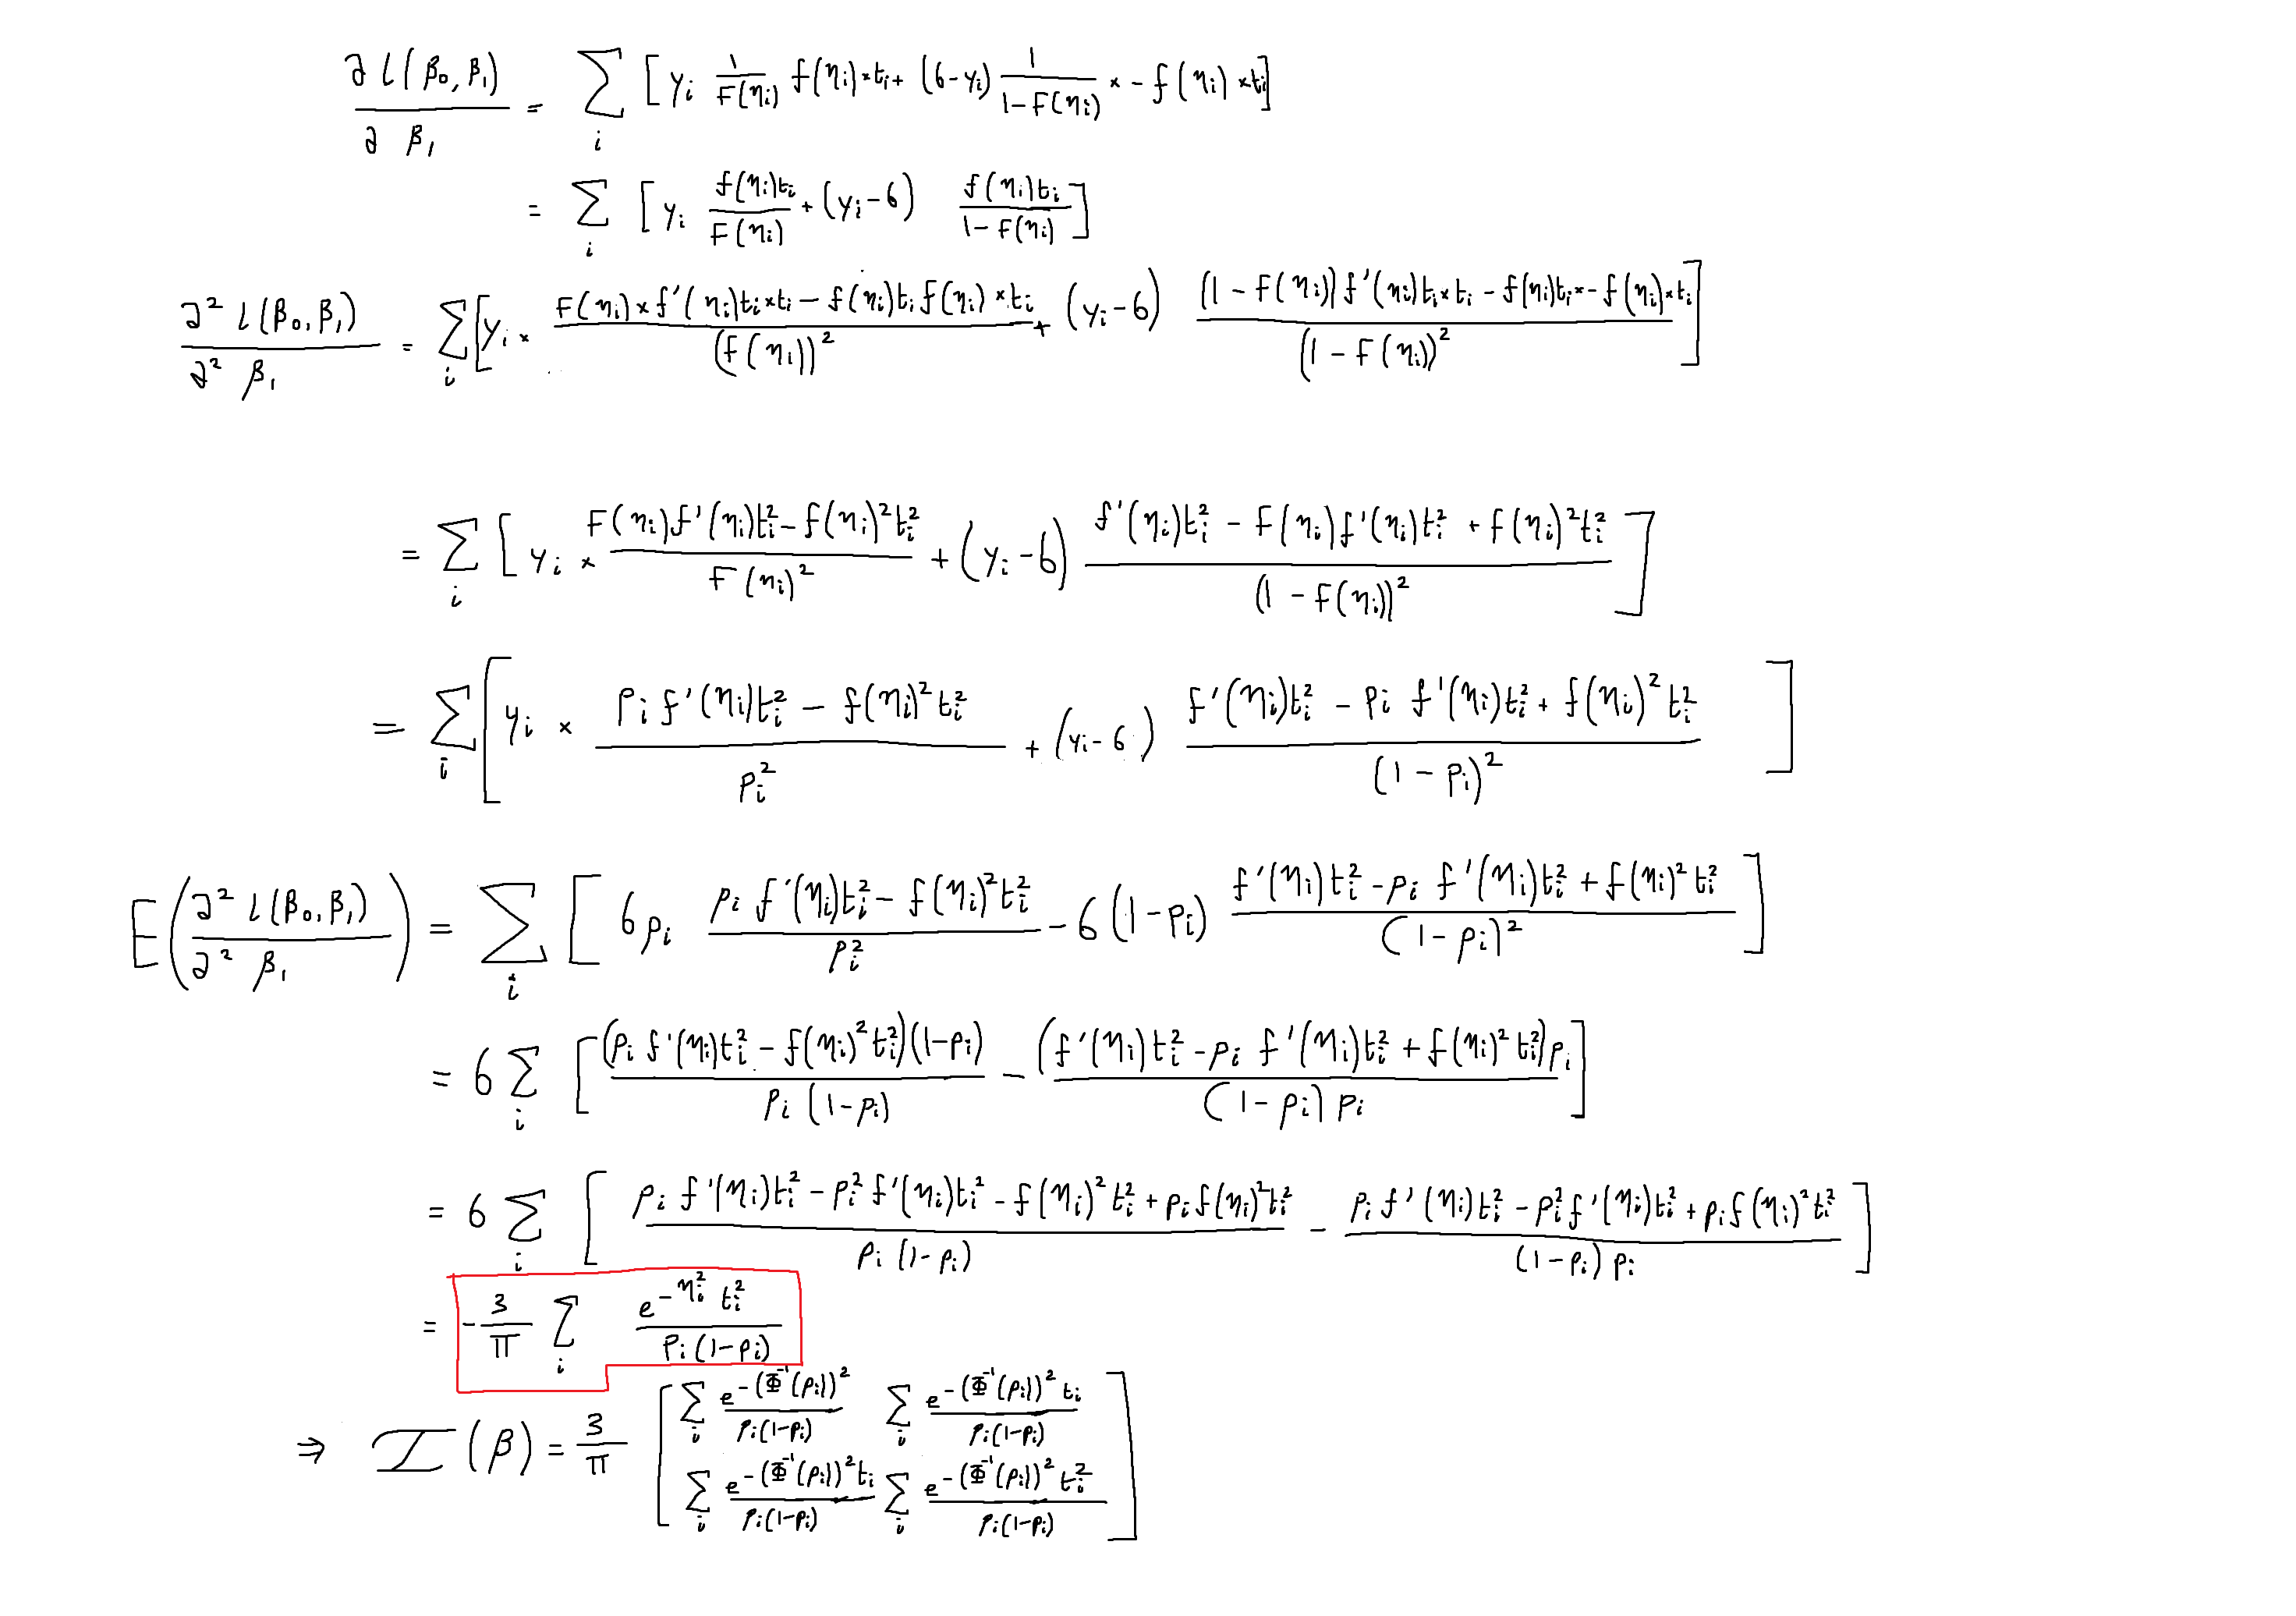 ∂ l(β₀, β₁) / ∂ β₁ = ∑_i [ y_i 1/F(η_i) f(η_i) × t_i + (6 - y_i) 1/(1 - F(η_i)) × - f(η_i) × t_i ]
= ∑_i [ y_i f(η_i)t_i / F(η_i) + (y_i - 6) f(η_i)t_i / (1 - F(η_i)) ]
∂² l(β₀, β₁) / ∂² β₁ = ∑_i [ y_i × (F(η_i) × f'(η_i)t_i × t_i - f(η_i)t_i f(η_i) × t_i) / (f(η_i))² + (y_i - 6) ((1 - F(η_i)) f'(η_i)t_i × t_i - f(η_i)t_i × - f(η_i) × t_i) / (1 - F(η_i))² ]
= ∑_i [ y_i × (F(η_i)f'(η_i)t_i² - f(η_i)²t_i²) / F(η_i)² + (y_i - 6) (f'(η_i)t_i² - F(η_i)f'(η_i)t_i² + f(η_i)²t_i²) / (1 - F(η_i))² ]
= ∑_i [ y_i × (p_i f'(η_i)t_i² - f(η_i)²t_i²) / p_i² + (y_i - 6) (f'(η_i)t_i² - p_i f'(η_i)t_i² + f(η_i)²t_i²) / (1 - p_i)² ]
E(∂² l(β₀, β₁) / ∂² β₁) = ∑_i [ 6p_i (p_i f'(η_i)t_i² - f(η_i)²t_i²) / p_i² - 6(1 - p_i) (f'(η_i)t_i² - p_i f'(η_i)t_i² + f(η_i)²t_i²) / (1 - p_i)² ]
= 6 ∑_i [ (p_i f'(η_i)t_i² - f(η_i)²t_i²)(1 - p_i) / p_i(1 - p_i) - (f'(η_i)t_i² - p_i f'(η_i)t_i² + f(η_i)²t_i²)p_i / (1 - p_i)p_i ]
= 6 ∑_i [ (p_i f'(η_i)t_i² - p_i² f'(η_i)t_i² - f(η_i)²t_i² + p_i f(η_i)²t_i²) / p_i(1 - p_i) - (p_i f'(η_i)t_i² - p_i² f'(η_i)t_i² + p_i f(η_i)²t_i²) / (1 - p_i)p_i ]
= - 3/π ∑_i e^{-η_i²} t_i² / p_i(1 - p_i)
⇒ I(β) = 3/π [ ∑_i e^{-(Φ⁻¹(p_i))²} / p_i(1 - p_i) ∑_i e^{-(Φ⁻¹(p_i))²} t_i / p_i(1 - p_i)
∑_i e^{-(Φ⁻¹(p_i))²} t_i / p_i(1 - p_i) ∑_i e^{-(Φ⁻¹(p_i))²} t_i² / p_i(1 - p_i) ]